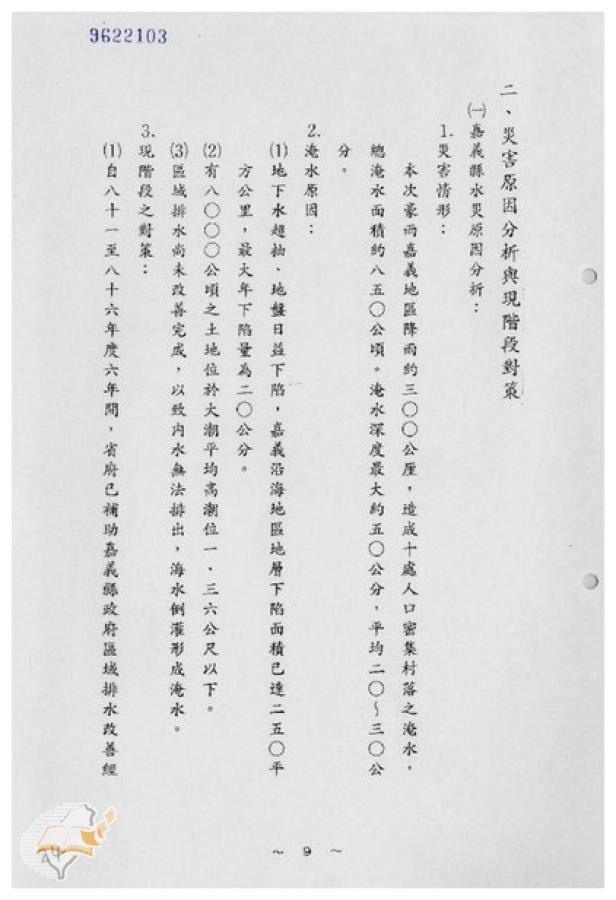 9622103
二、災害原因分析與現階段對策
㈠嘉義縣水災原因分析：
1.災害情形：
本次豪雨嘉義地區降雨約三〇〇公厘，造成十處人口密集村落之淹水，
總淹水面積約八五〇公頃。淹水深度最大約五〇公分，平均二〇～三〇公
分。
2.淹水原因：
⑴地下水超抽、地盤日益下陷，嘉義沿海地區地層下陷面積已達二五〇平
方公里，最大年下陷量為二〇公分。
⑵有八〇〇〇公頃之土地位於大潮平均高潮位一．三六公尺以下。
⑶區域排水尚未改善完成，以致內水無法排出，海水倒灌形成淹水。
3.現階段之對策：
⑴自八十一至八十六年度六年間，省府已補助嘉義縣政府區域排水改善經
～ 9 ～